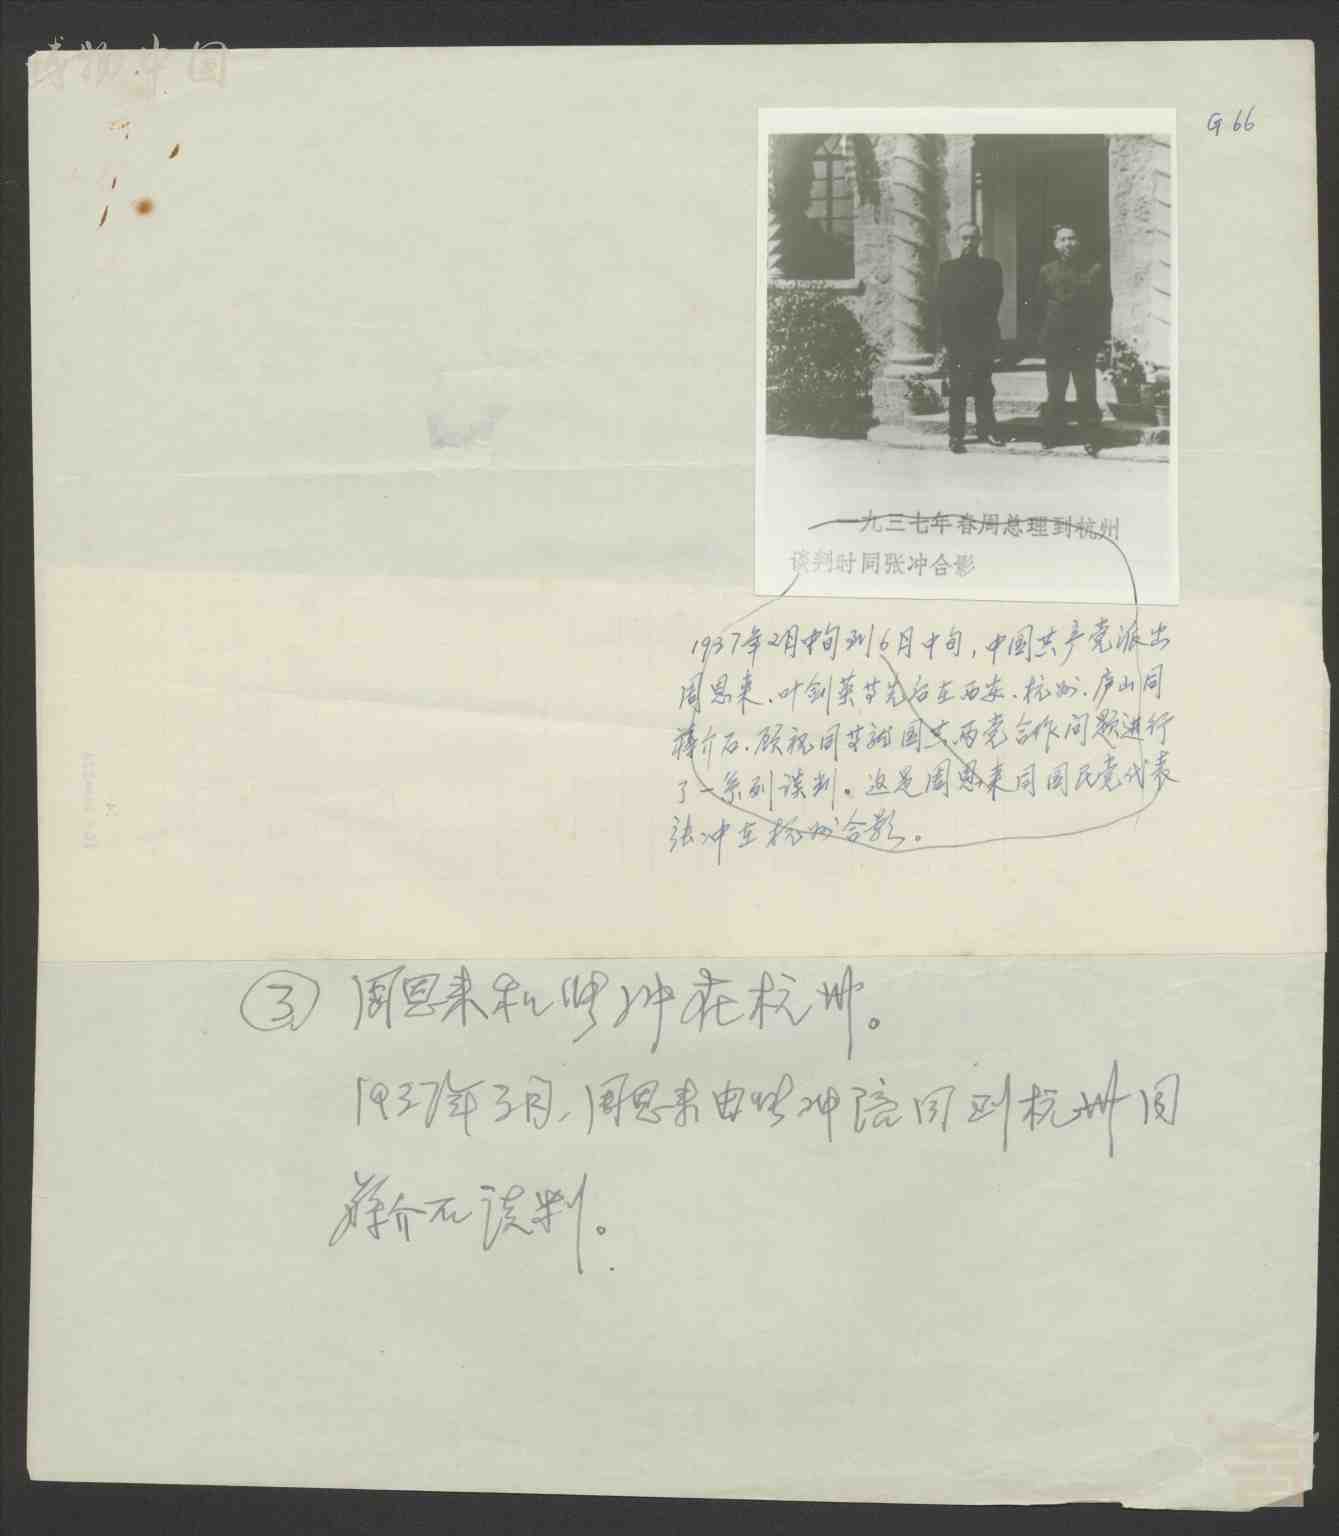 博物中国
G66
一九三七年春周总理到杭州
谈判时同张冲合影
1937年2月中旬到6月中旬，中国共产党派出
周恩来、叶剑英等先后在西安、杭州、庐山同
蒋介石、顾祝同等就国共两党合作问题进行
了一系列谈判。这是周恩来同国民党代表
张冲在杭州合影。
③ 周恩来和张冲在杭州。
1937年3月，周恩来由张冲陪同到杭州同
蒋介石谈判。